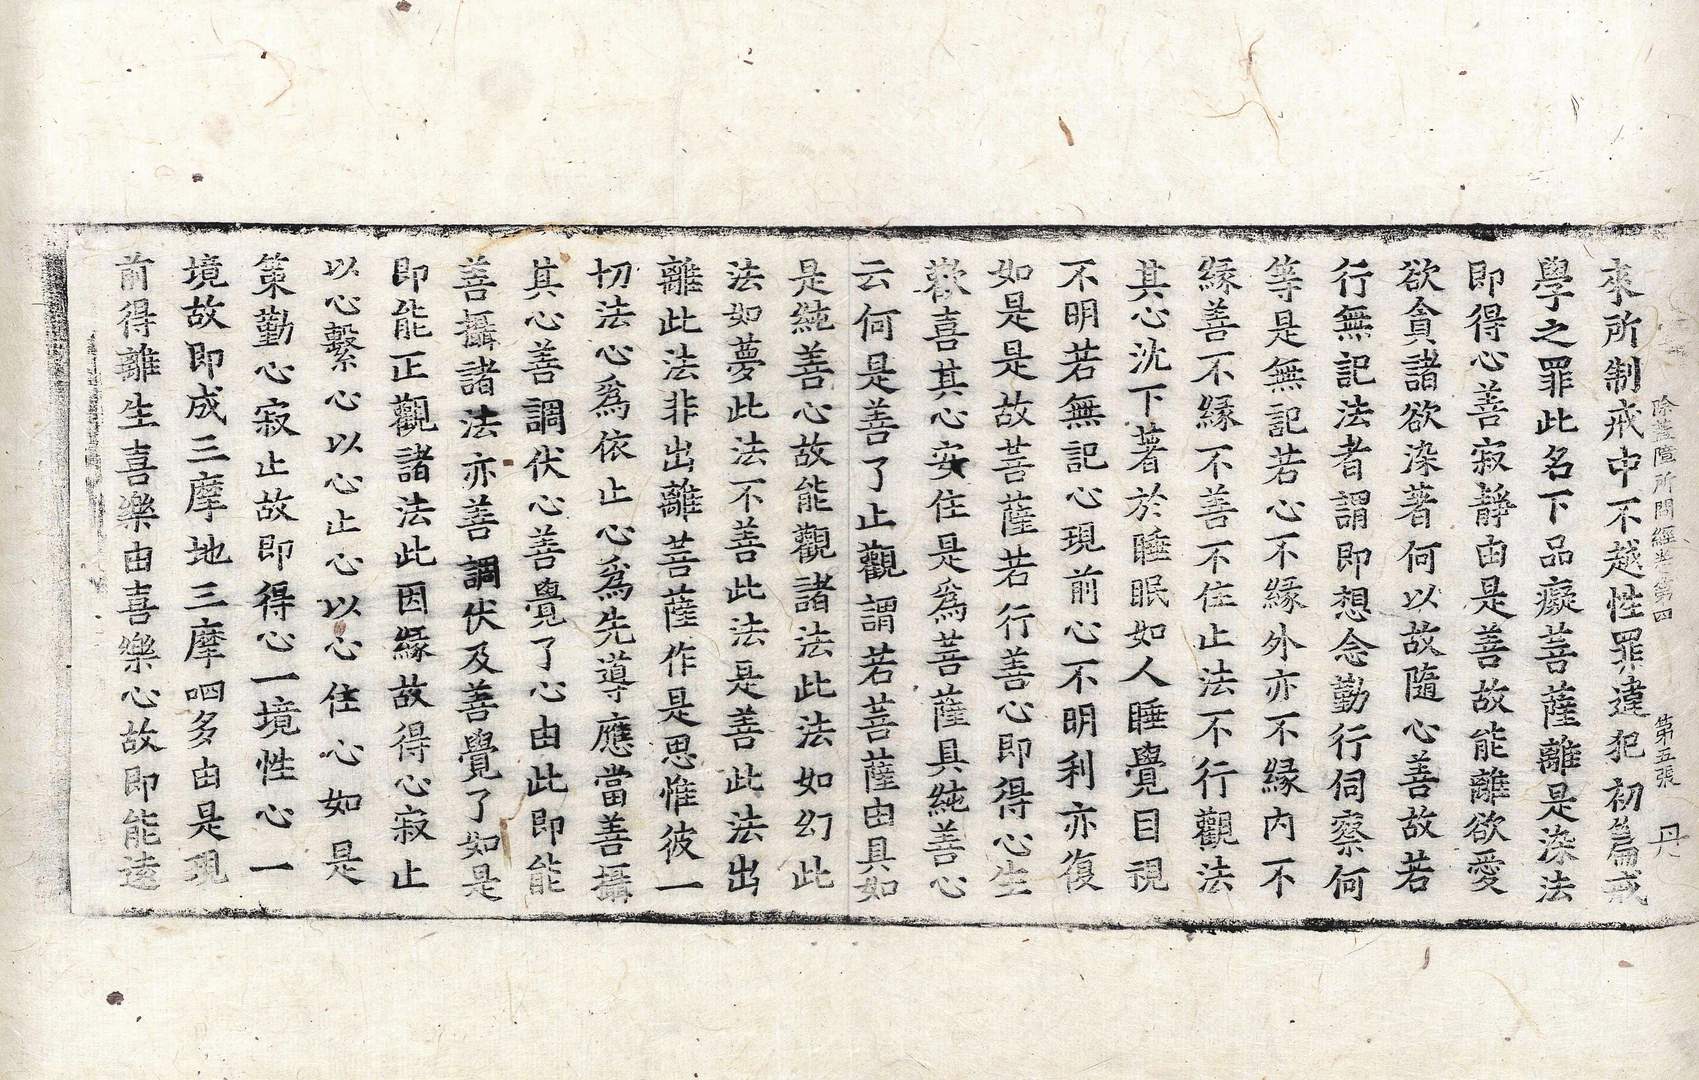 除蓋障所問經卷第四 第五張 丹
來所制戒中不越性罪違犯初篇戒
學之罪此名下品癡菩薩離是染法
即得心善寂靜由是善故能離欲愛
欲貪諸欲染著何以故隨心善故若
行無記法者謂即想念勤行伺察何
等是無記若心不緣外亦不緣内不
緣善不緣不善不住止法不行觀法
其心沈下著於睡眠如人睡覺目視
不明若無記心現前心不明利亦復
如是是故菩薩若行善心即得心生
歡喜其心安住是爲菩薩具純善心
云何是善了止觀謂若菩薩由具如
是純善心故能觀諸法此法如幻此
法如夢此法不善此法是善此法出
離此法非出離菩薩作是思惟彼一
切法心爲依止心爲先導應當善攝
其心善調伏心善覺了心由此即能
善攝諸法亦善調伏及善覺了如是
即能正觀諸法此因緣故得心寂止
以心繫心以心止心以心住心如是
策勤心寂止故即得心一境性心一
境故即成三摩地三摩呬多由是現
前得離生喜樂由喜樂心故即能遠